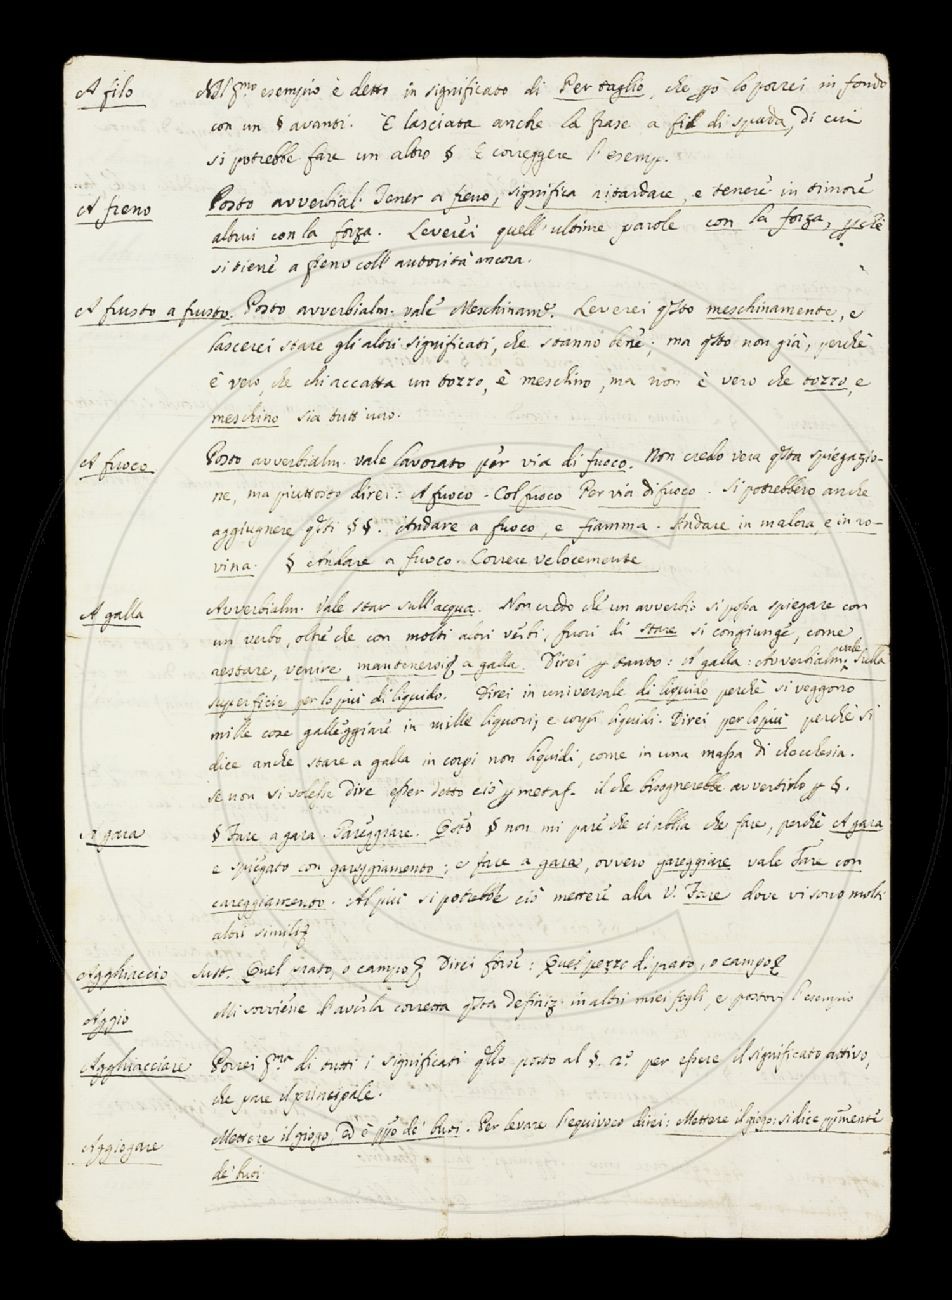 A filo Nel pmo esempio è detto in significato di Per taglio, che ppò lo porrei in fondo
con un § avanti. È lasciata anche la frase a fil di spada, di cui
si potrebbe fare un altro § E correggere l'esemp.
A freno Posto avverbial. Tener a freno, significa ritardare, e tenere in timore
altrui con la forza. Leverei quell'ultime parole con la forza, pchè
si tiene a freno coll'autorità ancora.
A frusto a frusto. Posto avverbialm. vale Meschinamte. Leverei qsto meschinamente, e
lascerei stare gli altri significati, che stanno bene; ma qsto non già, perchè
è vero, che chi accatta un tozzo, è meschino, ma non è vero che tozzo, e
meschino sia tutt'uno.
A fuoco Posto avverbialm. vale lavorato per via di fuoco. Non credo vera qsta spiegazio-
ne, ma piuttosto direi: A fuoco. Col fuoco Per via di fuoco. Si potrebbero anche
aggiugnere qsti §§. Andare a fuoco, e fiamma. Andare in malora, e in ro-
vina. § Andare a fuoco. Correre velocemente
A galla Avverbialm. Vale star sull'acqua. Non credo che un avverbio si possa spiegare con
un verbo, oltre che con molti altri verbi, fuori di stare si congiunge, come
restare, venire, mantenersi a galla. Direi p tanto: A galla: Avverbialm. vale Sulla
superficie per lo più di liquido. Direi in universale di liquido perchè si veggono
mille cose galleggiare in mille liquori, e corpi liquidi. Direi per lo più perchè si
dice anche stare a galla in corpi non liquidi, come in una massa di chocclesia.
Se non si volesse dire esser detto ciò p metaf. il che bisognerebbe avvertirlo p §.
A gara § Fare a gara. Gareggiare. Qsto § non mi pare che ci abbia che fare, perchè A gara
e spiegato con gareggiamento; e fare a gara, ovvero gareggiare vale Fare con
gareggiamento. Al più si potrebbe ciò mettere alla V. Fare dove vi sono molti
altri simili
Agghiaccio Sust. Quel prato, o campo Direi forse: Quel pezzo di prato, o campo
Aggio Mi sovviene l'averla corretta qsta definiz. in altri miei fogli, e postovi l'esempio
Agghiacciare Porrei pmo di tutti i significati qllo posto al §. 2o per essere il significato attivo,
che pare il principale.
Aggiogare Mettere il giogo, ed è ppio de' buoi. Per levare l'equivoco direi: Mettere il giogo; si dice ppmente
de' buoi